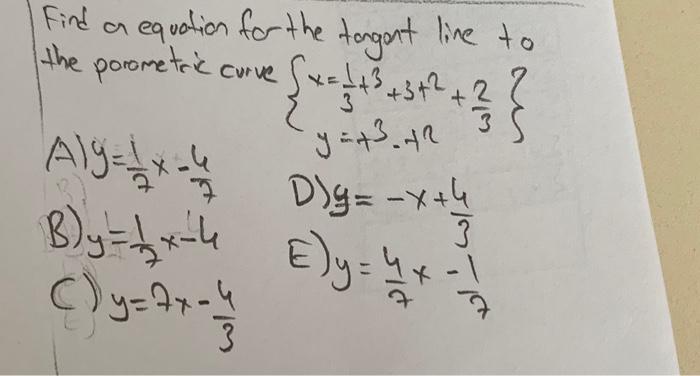 Find an equation for the tangent line to
the parametric curve { x = 1/3 t³ + 3t² + 2/3 }
y = t³ - t²
A) y = 1/7 x - 4/7
B) y = 1/7 x - 4
C) y = 7x - 4/3
D) y = -x + 4/3
E) y = 4/7 x - 1/7